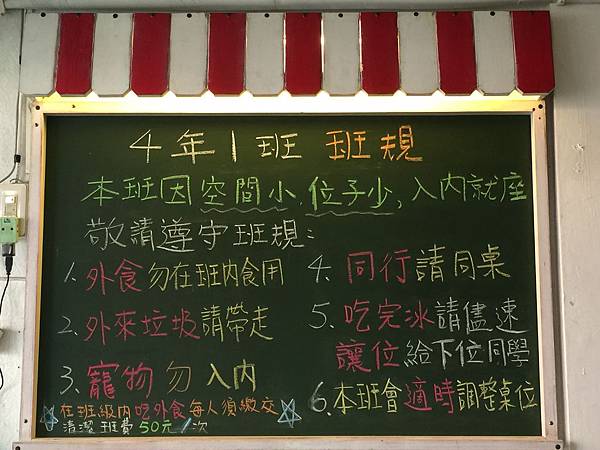 4年1班 班規
本班因空間小,位子少,入內就座
敬請遵守班規:
1.外食勿在班內食用
2.外來垃圾請帶走
3.寵物勿入內
4.同行請同桌
5.吃完冰請儘速
讓位給下位同學
6.本班會適時調整桌位
☆在班級內吃外食每人須繳交☆
清潔班費50元/次